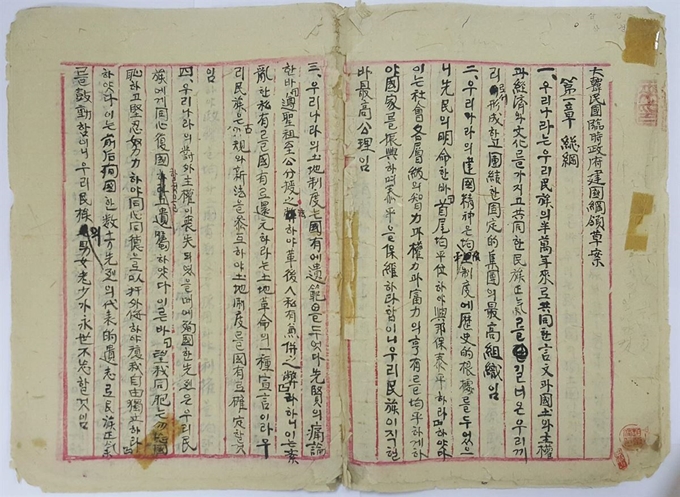 大韓民國臨時政府建國綱領草案
第一章 總綱
一、우리나라는 우리民族의 半萬年來로 共同한 言文과 國土와 主權
과 經濟와 文化를 가지고 共同한 民族正氣를 길너온 우리끼
리 形成하고 團結한 固定的集團의 最高組織임
二、우리나라의 建國精神은 三均制度에 歷史的根據를 두었으
니 先民의 明命한바 首尾均平位하야 興邦保泰平하리라 하야
이는 社會各層級의 智力과 權力과 富力의 享有를 均平하게하
야 國家를 振興하며 泰平을 保維하라함이니 우리民族이 지킬
바 最高公理임
三、우리나라의 土地制度는 國有에 遺範을 두엇다 先賢의 痛論
한바 遵聖祖至公分授之法하야 革後人私有兼倂之弊라하니 이는 紊
亂한 私有를 國有로 還元하라는 土地革命의 一種宣言이라 우
리民族은 古規와 新法을 參互하야 土地制度를 國有로 確定할것
임
四、우리나라의 對外主權이 喪失되엿을때에 殉國한 先烈은 우리民
族에게 同心復國할것을 遺囑하엿다 이른바 望我同胞는 勿忘國
恥하고 堅忍努力하야 同心同德으로 以扞外侮하야 復我自由獨立하라
하엿다 이는 前后殉國한 數十萬先烈의 代表的遺志로 民族正氣
를 鼓動함이니 우리民族의 男女老少가 永世不忘할것임